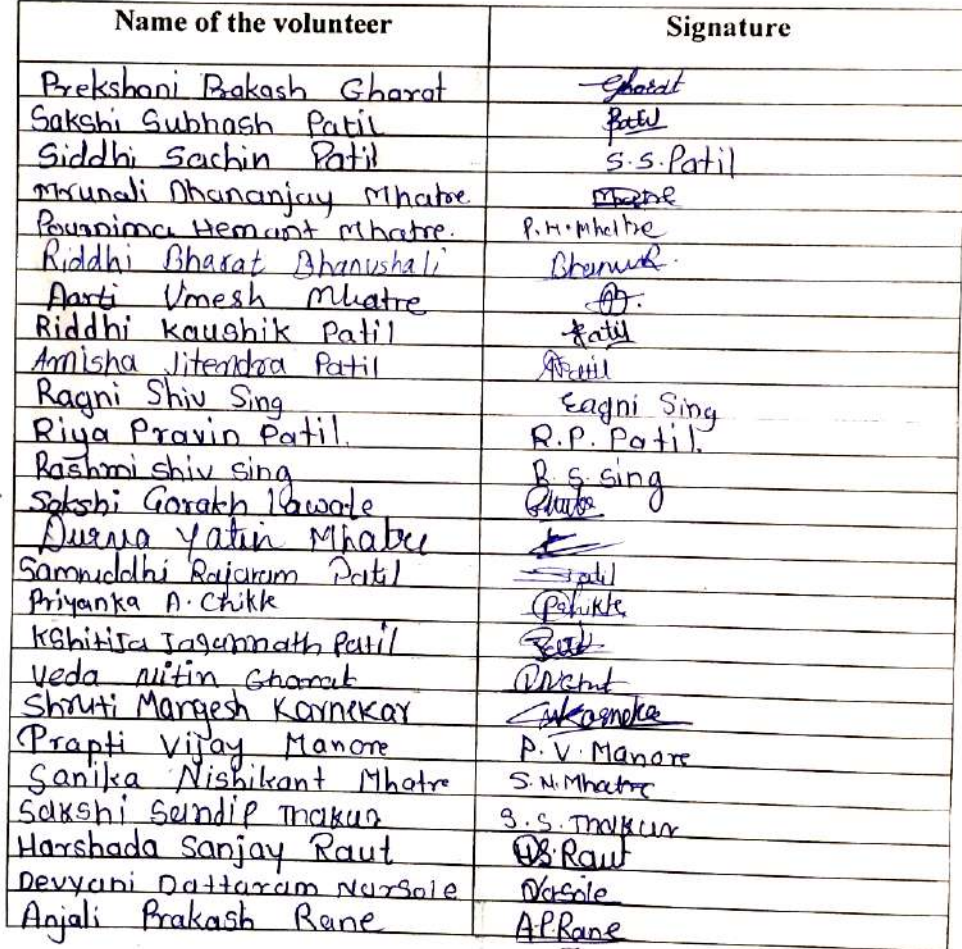 Name of the volunteer Signature
Prekshani Prakash Gharat Gharat
Sakshi Subhash Patil Patil
Siddhi Sachin Patil S.S.Patil
Mrunali Dhananjay Mhatre
Pournima Hemant Mhatre. P.H.Mhatre
Riddhi Bharat Bhanushali
Aarti Umesh Mhatre
Riddhi Kaushik Patil Patil
Amisha Jitendra Patil APatil
Ragni Shiv Sing Ragni Sing
Riya Pravin Patil. R.P. Patil.
Rashmi Shiv Sing R.S.Sing
Sakshi Gorakh
Durva Yatin Mhatre
Samruddhi Rajaram Patil Patil
Priyanka A. Chikle
Kshitija Jagannath Patil
Veda Nitin Gharat
Shruti Mangesh Karnekar
Prapti Vijay Manore P.V. Manore
Sanika Nishikant Mhatre S.N.Mhatre
Sakshi Sandip Thakur S.S.Thakur
Harshada Sanjay Raut H.S.Raut
Devyani Dattaram Narsole
Anjali Prakash Rane A.P.Rane